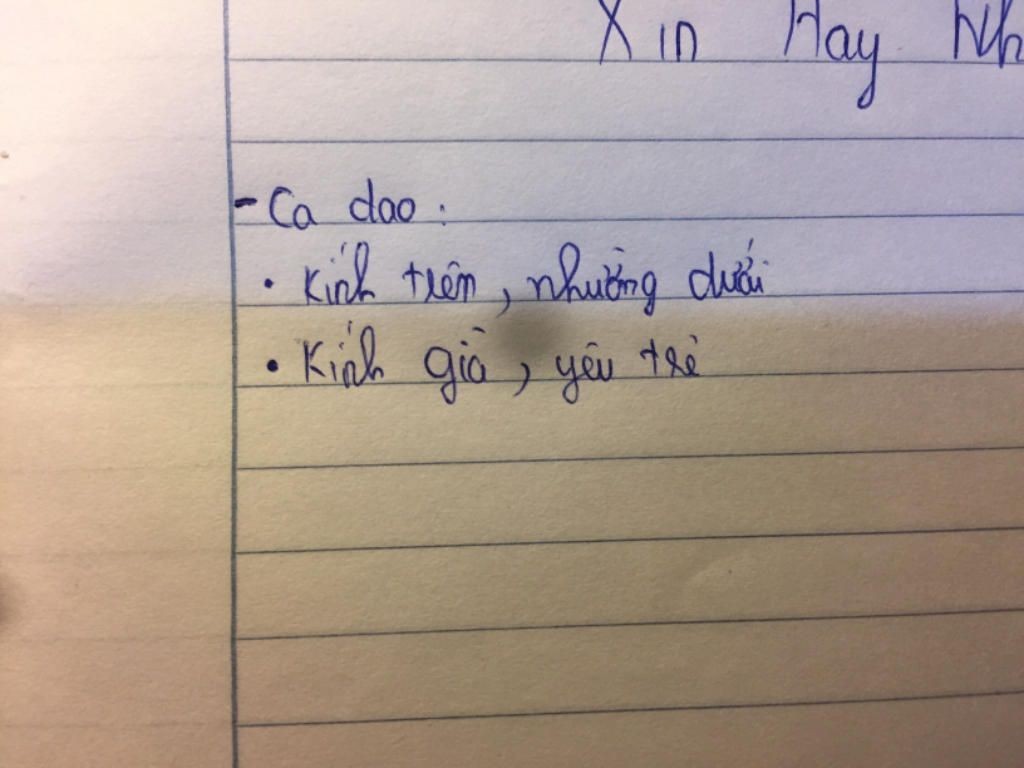 Xin Hay Nh
- Ca dao :
• Kính trên, nhường dưới
• Kính già, yêu trẻ